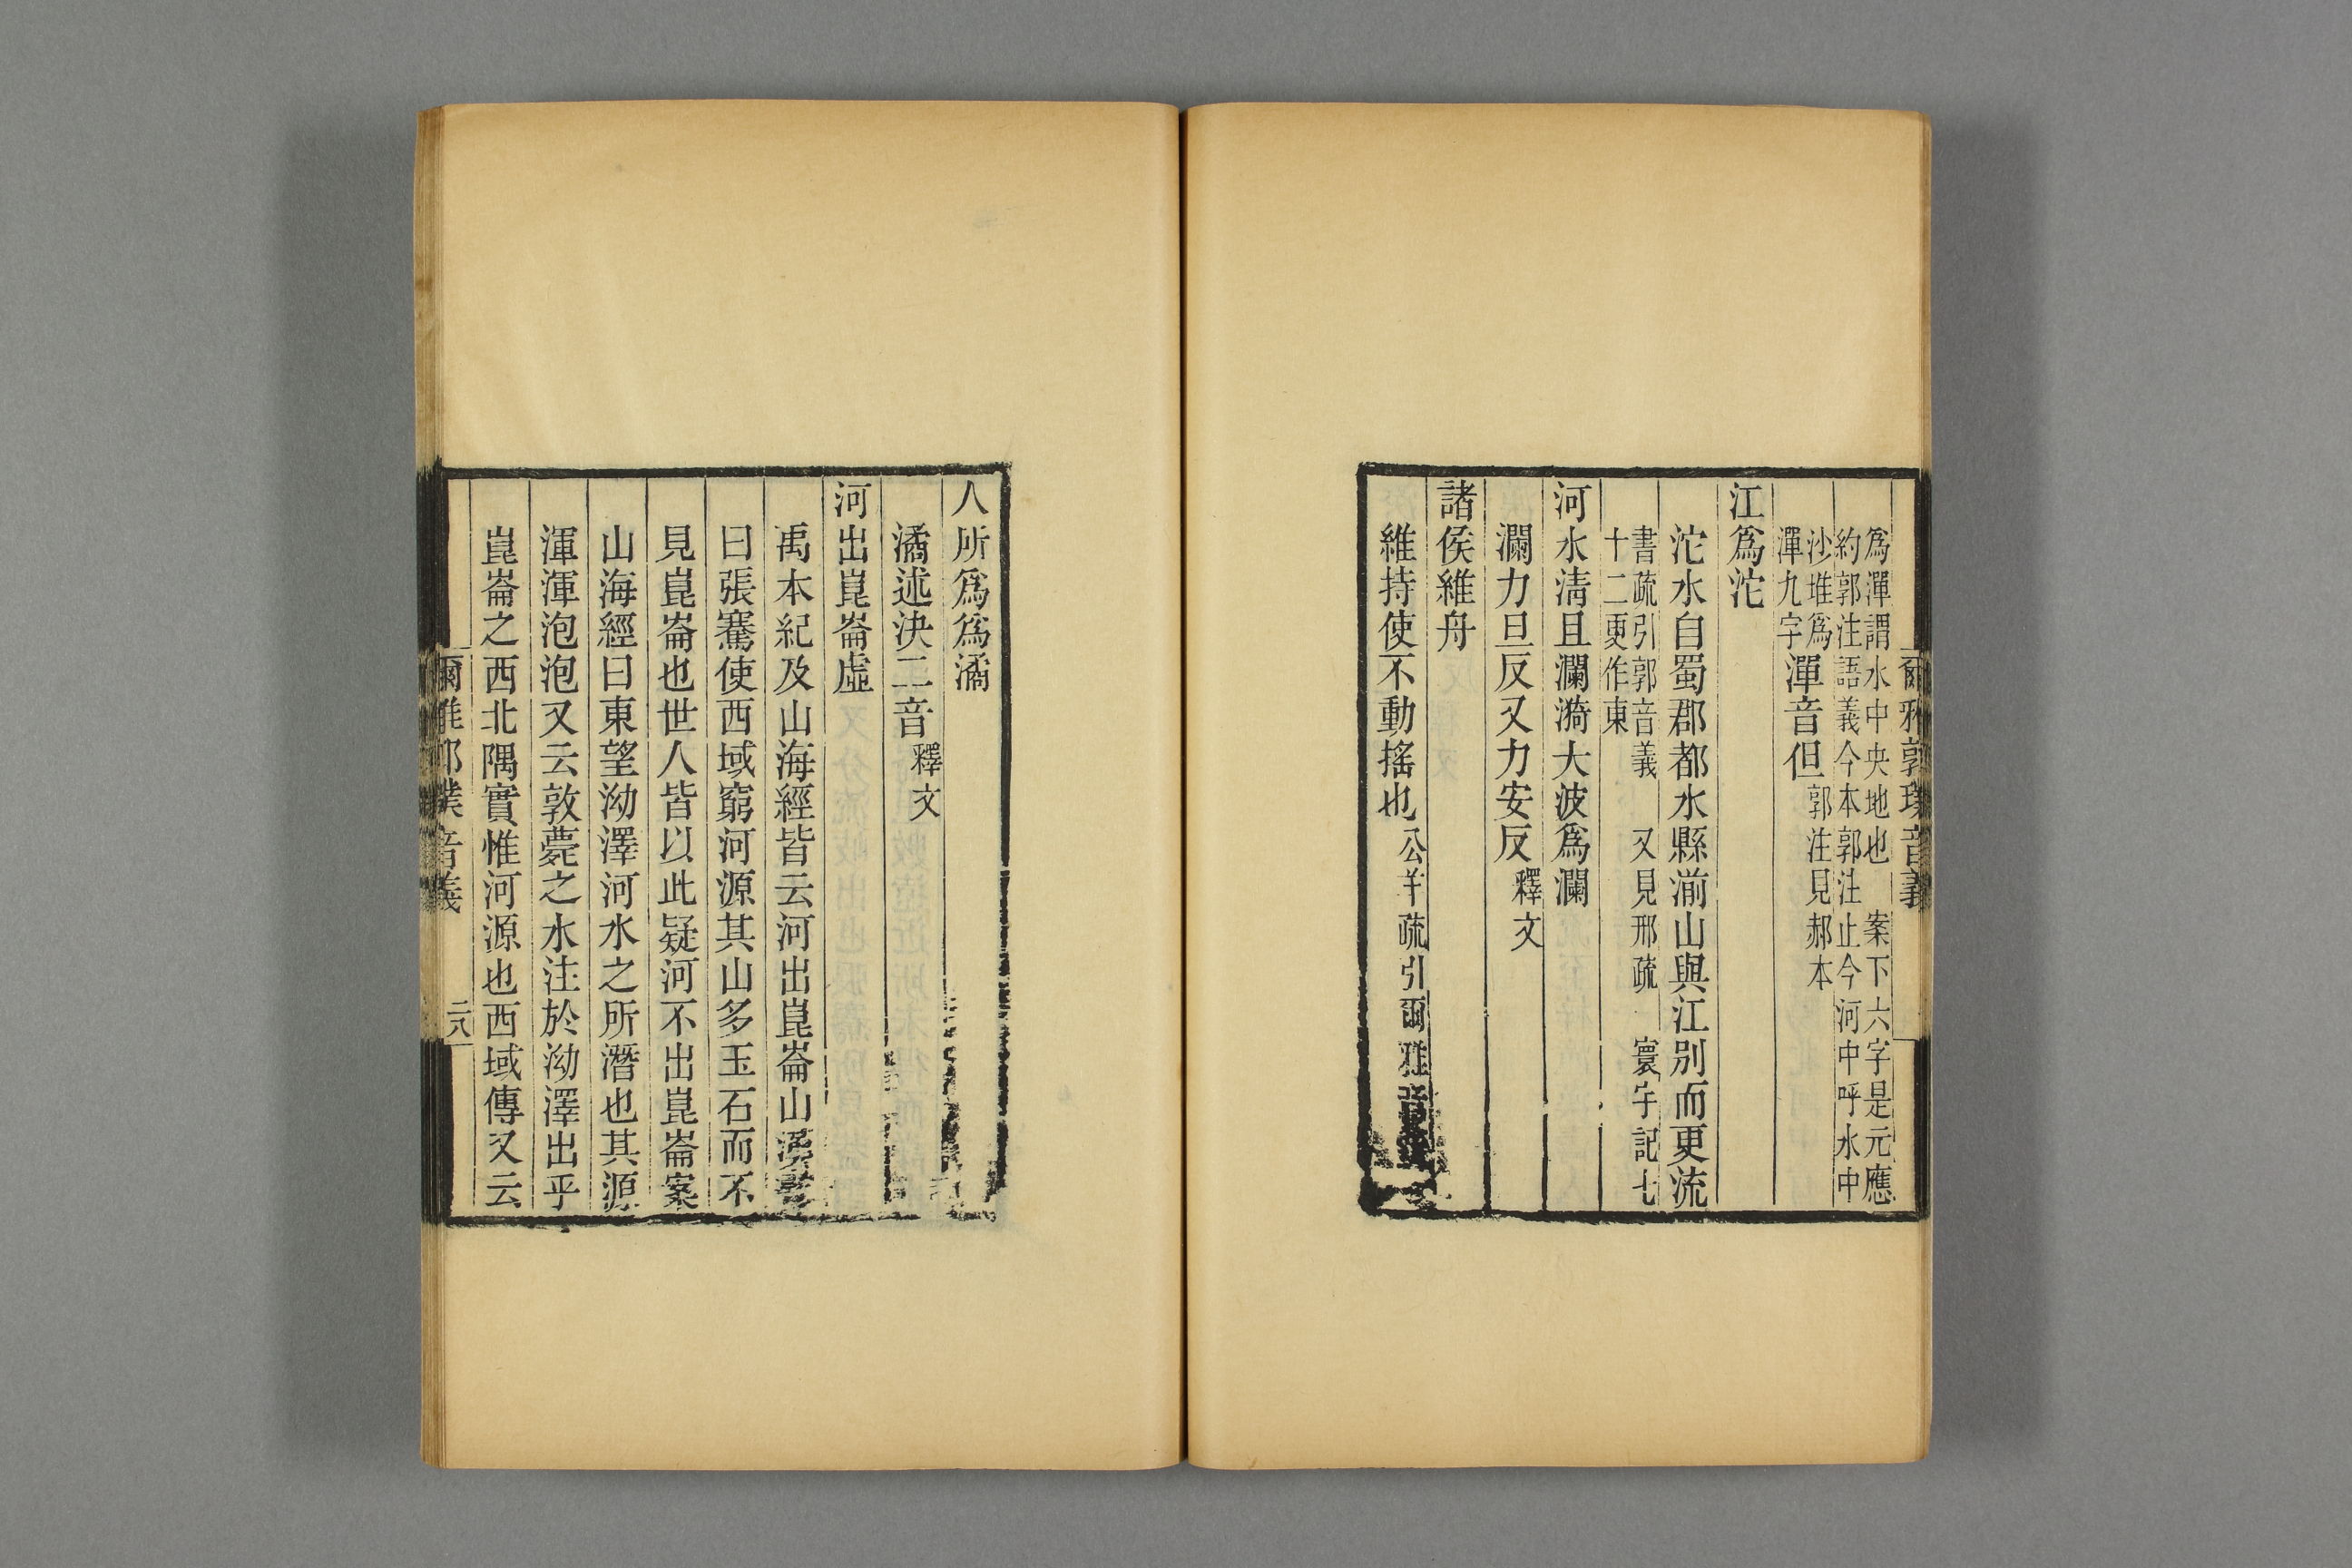 爾雅郭璞音義
爲潬謂水中央地也 案下六字是元應
約郭注語義今本郭注止今河中呼水中
沙堆爲
潬九字
潬音但
郭注見郝本
江爲沱
沱水自蜀郡都水縣湔山與江別而更流
書疏引郭音義 又見邢疏 寰宇記七
十二更作東
河水淸且瀾漪大波爲瀾
瀾力旦反又力安反釋文
諸侯維舟
維持使不動搖也公羊疏引爾雅音
人所爲爲潏
潏述決二音釋文
河出崑崙虛
禹本紀及山海經皆云河出崑崙山漢書
曰張騫使西域窮河源其山多玉石而不
見崑崙也世人皆以此疑河不出崑崙案
山海經曰東望泑澤河水之所潛也其源
渾渾泡泡又云敦薨之水注於泑澤出乎
崑崙之西北隅實惟河源也西域傳又云
爾雅郭璞音義 二八